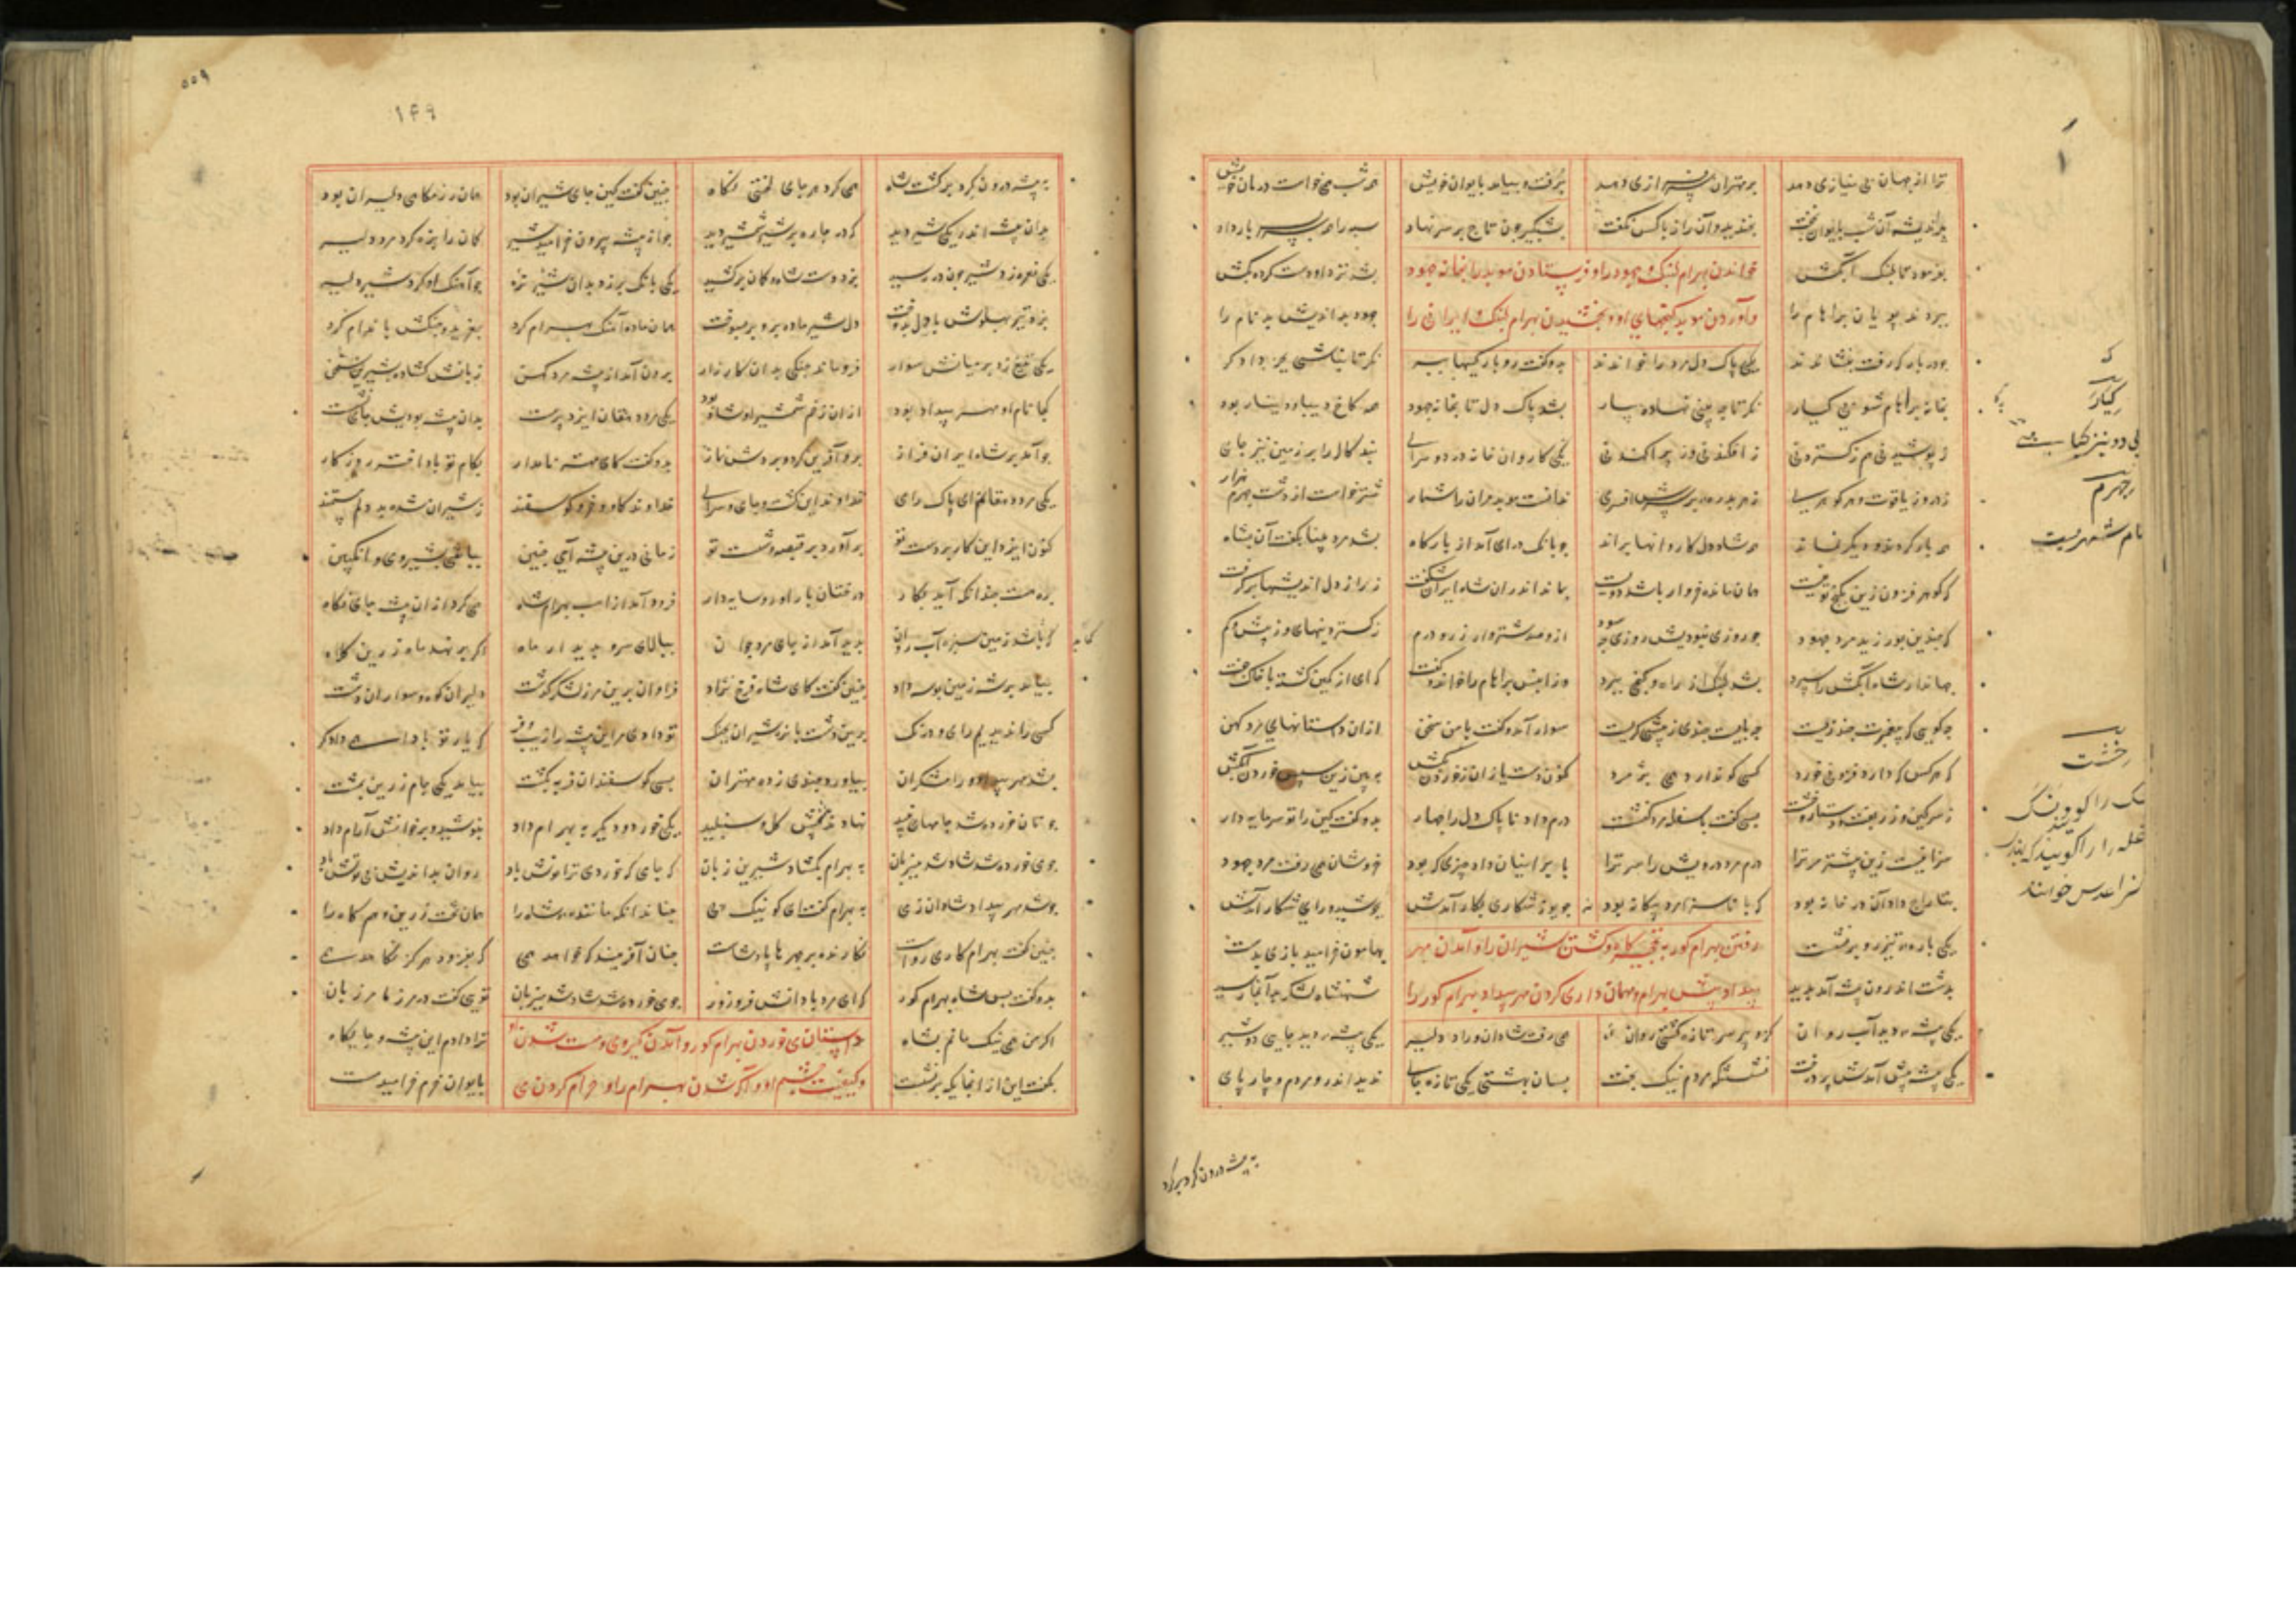 ترا از جهان بی نیازی دهد بر مهتران سرفرازی دهد برفت و بیامد بایوان خویش همه شب همی خواست درمان خویش
پراندیشه آن شب بایوان بخفت بخندید و آن راز با کس نگفت بشبگیر چون تاج بر سر نهاد سپه را همه سربسر بار داد
بفرمود تا لنبک آبکش بشد نزد او دست کرده بکش
خواندن بهرام لنبک و جهود را و فرستادن موبد را بخانه جهود
ببردند پویان براهام را جهود بداندیش بدنام را
و آوردن موبد گنجهای او و بخشیدن بهرام لنبک و ایرانی را
چو در بارگه رفت بنشاندند یکی پاک دل مرد را خواندند بدو گفت رو بارگیها ببر نگر تا نباشی بجز دادگر
بخانه براهام شو بی کیار نگر تا چه بینی نهاده بیار بشد پاک دل تا بخانه جهود همه کاخ دیبا و دینار بود
ز پوشیدنی هم ز گستردنی ز افکندنی و ز پراکندنی یکی کاروان خانه در و سرای نبد کاله را بر زمین نیز جای
ز در و ز یاقوت و هر گوهری ز هر بدره بر سرش افسری ندانست موبد مر آن را شمار شتر خواست از دشت جهرم هزار
همه بار کردند و دیگر نماند همه شاد دل کاروانها براند چو بانگ درای آمد از بارگاه بشد مرد بینا بگفت آن بشاه
که گوهر فزون زین بگنج تو نیست همان مانده خروار باشد دویست بماند اندران شاه ایران شگفت ز راز دل اندیشها برگرفت
که چندین بورزید مرد جهود چو روزی نبودش ز ورزش چه سود ازو صد شتروار زر و درم ز گستردنیهای و ز بیش و کم
جهاندار شاه آبکش را سپرد بشد لنبک از راه و گنجی ببرد و زان پس براهام را خواند و گفت که ای از کمین گشته با خاک جفت
چه گویی که پیغمبرت چند زیست چه بایست چندی ز چشمی گریست سوار آمد و گفت با من سخن از آن داستانهای مرد کهن
که هر کس که دارد فزونی خورد کسی کو ندارد همی پژمرد کنون دست یازان ز خوردن بکش به بین زین سپس خوردن آبکش
ز سرگین و زربفت و دستار و خشت بسی گفت با سفله مرد کنشت درم داد نا پاک دل را چهار بدو گفت کین را تو سرمایه دار
سزا نیست زین بیشتر مر ترا درم مرد درویش را سر ترا بارزانیان داد چیزی که بود خروشان همی رفت مرد جهود
بتاراج داد آن در خانه بود که با ناسزا مرد بیگانه بود چو یوز شکاری بکار آمدش بجوشید و رای شکار آمدش
یکی باره تیزرو برنشست بهامون خرامید بازی بدست
رفتن بهرام گور به نخچیرگاه و کشتن شیران را و آمدن مهر
بدشت اندرون بیشه آمد پدید شهنشاه لشکر بدانجا رسید
بیداد پیش بهرام و مهمان داری کردن مهر بیداد بهرام گور را
یکی بیشه دید آب روان کزو پیر سر تازه گشتی روان همی رفت شادان و راد و دلیر یکی بیشه دید جایی دو شیر
یکی بیشه پیش آمدش پر درخت نشستنگه مردم نیک بخت بسان بهشتی یکی تازه جای ندید اندرو مردم و چارپای
کیار
جهرم
نام شهریست
خشت
به بیشه درون گرد بر گرد
۵۵۹
۱۴۹
به بیشه درون گرد برگشت شاه همی کرد هر جای لختی نگاه چنین گفت کین جای شیران بود همان رزمگاهی دلیران بود
بدان بیشه اندر یکی شیر دید که در چاره بر شیر شمشیر دید چو از بیشه بیرون خرامید شیر کمان را بزه کرد مرد دلیر
یکی نعره زد شیر چون در رسید بزد دست شاه و کمان برکشید یکی بانگ بر زد بدان شیر نره چو آهنگ او کرد شیر دلیر
بزد تیر پهلوش با دل بدوخت دل شیر ماده برو بر بسوخت همان ماده آهنگ بهرام کرد بغرید و چنگش باندام کرد
یکی تیغ زد بر میانش سوار فرو ماند جنگی بدان کارزار برون آمد از بیشه مرد کهن زبانش گشاده بشیرین سخن
کجا نام او مهر بیداد بود از آن زخم شمشیر او شاد بود یکی مرد دهقان ایزد پرست بدان بیشه بودیش جای نشست
چو آمد بر شاه ایران فراز برو آفرین کرد و بردش نماز بدو گفت کای مهتر نامدار بکام تو بادا اختر روزگار
یکی مرد دهقانم ای پاک رای خداوند این کشت و جای و سرای خداوند گاو و خر و گوسفند ز شیران شده بد دلم مستمند
کنون ایزد این کار بر دست تو برآورد بر قبضه و شست تو زمانی درین بیشه آیی چنین بباشی بشیر و می و انگبین
بره هست چندانکه آید بکار درختان بارآور و سایه دار فرود آمد از اسب بهرام شاه همی کرد از آن بیشه جای نگاه
که باشد زمین سبزه آب روان پدید آمد از جای مرد جوان ببالای سرو بدیدار ماه اگر بر نهد ماه زرین کلاه
بیامد برش زمین بوسه داد چنین گفت کای شاه فرخ نژاد فراوان برین مرز لشکر گذشت دلیران کوه و سواران دشت
کسی را ندیدیم رای و درنگ برین دشت با نره شیران بجنگ تو دادی مر این بیشه را زیب و فر که یار تو بادا سر دادگر
بشد مهر بیداد و رامشگران بیاورد چندی ز ده مهتران بسی گوسفندان فربه بکشت بیامد یکی جام زرین بمشت
چو نان خورده شد جامهای نبید نهادند پیشش گل و شنبلید یکی خورد و دیگر به بهرام داد بنوشید و بر خوانش آرام داد
چو می خورده شد شاد شد میزبان به بهرام بگشاد شیرین زبان که جای که خوردی ترا نوش باد روان بداندیش بی توش باد
چو شد مهر بیداد شادان ز می به بهرام گفت ای گو نیک پی چنان دانکه ماننده شاه را همان تخت زرین و هم گاه را
چنین گفت بهرام کاری رواست نگارنده بر چهرها پادشاست چنان آفریند که خواهد همی که بفزود هرگز نکاهد همی
بدو گفت پس شاه بهرام گور که ای مرد با دانش و فر و زور چو می خورده شد شاد شد میزبان توی گفت در مرز ما مرزبان
اگر من همی نیک مانم بشاه ترا دادم این بیشه و جایگاه
داستان می خوردن بهرام گور و آمدن کبروی و مست شدن او
بگفت این از انجایگه برنشست بایوان خرم خرامید مست
و کیفیت چشم او و آگه شدن بهرام را و حرام کردن می